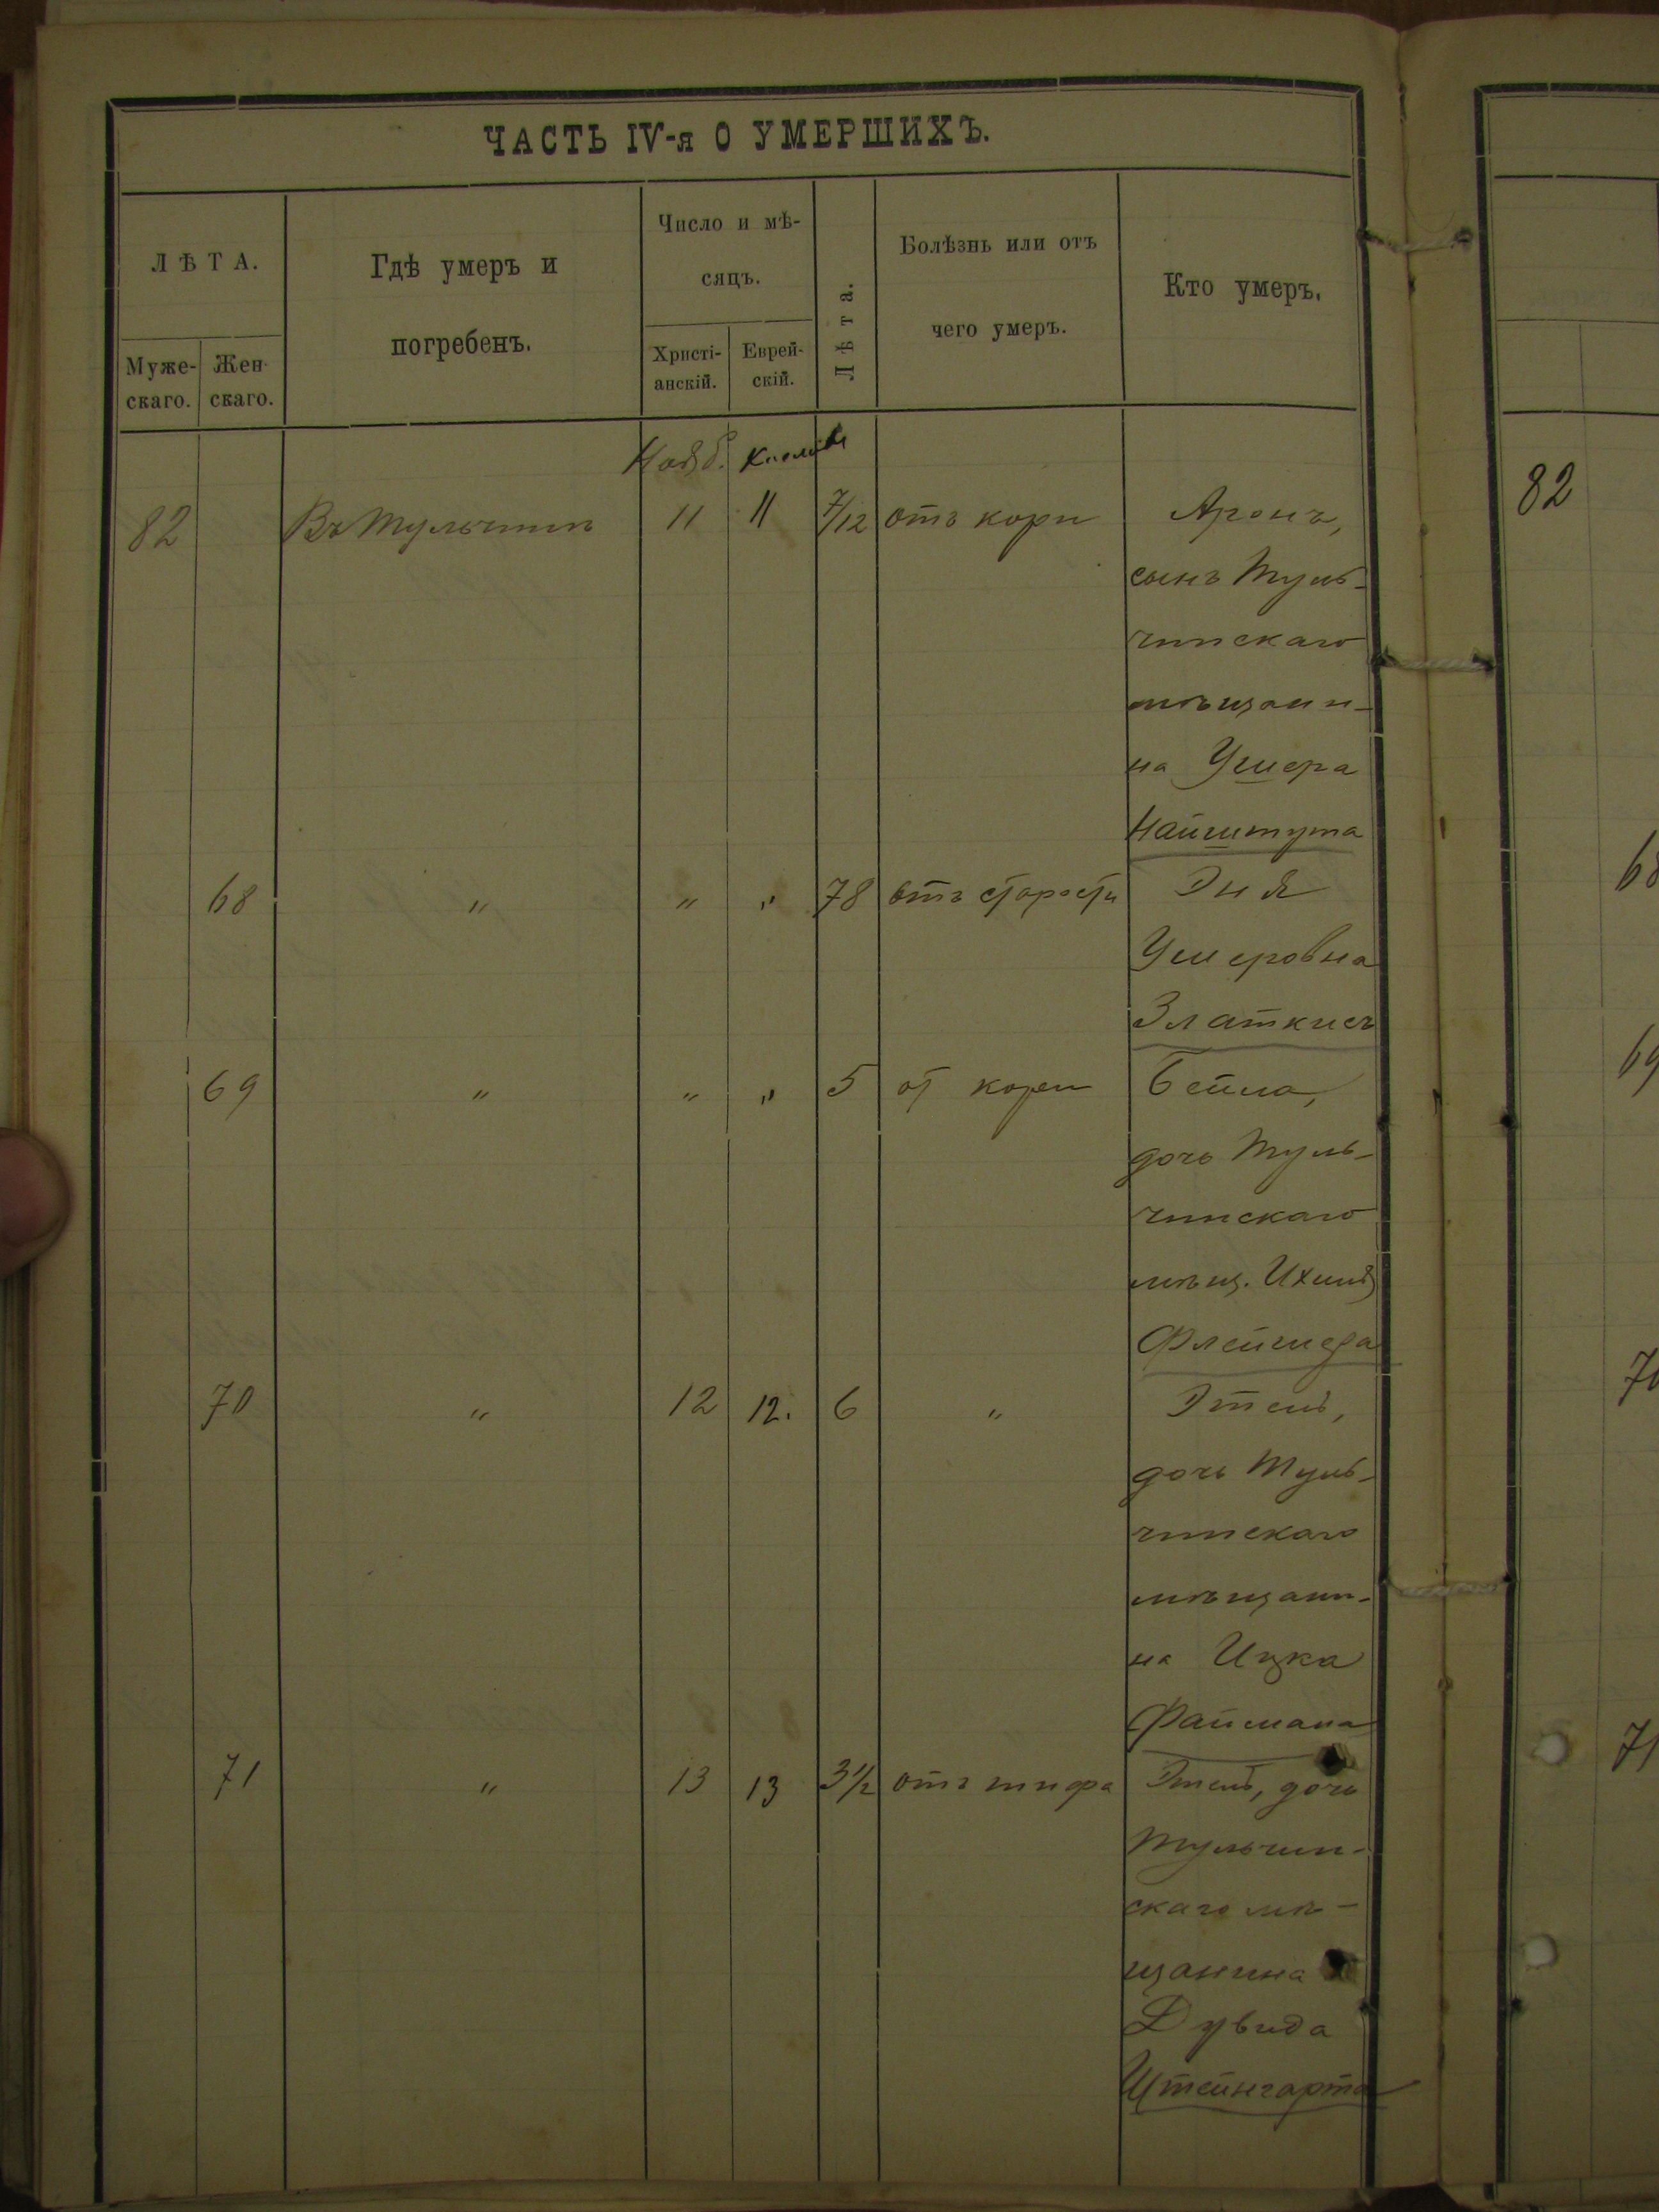 ЧАСТЬ IV-я О УМЕРШИХЪ.
ЛѢТА.
Муже-
скаго.
Жен-
скаго.
Гдѣ умеръ и
погребенъ.
Число и мѣ-
сяцъ.
Христі-
анскій.
Еврей-
скій.
Лѣта.
Болѣзнь или отъ
чего умеръ.
Кто умеръ.
Нояб. Кислевъ
82 Въ Тульчинѣ 11 11 7/12 отъ кори Аронъ,
сынъ Туль-
чинскаго
мѣщани-
на Ушера
Найштута
68 " " " 78 отъ старости Эня
Ушеровна
Златкисъ
69 " " " 5 от кори Бейла,
дочь Туль-
чинскаго
мѣщ. Ихиля
Флейшера
70 " 12 12. 6 " Этель,
дочь Туль-
чинскаго
мѣщани-
на Ицка
Файмана
71 " 13 13 3 1/2 отъ тифа Этель, дочь
Тульчин-
скаго мѣ-
щанина
Дувида
Штейнгарта
82
68
69
70
71